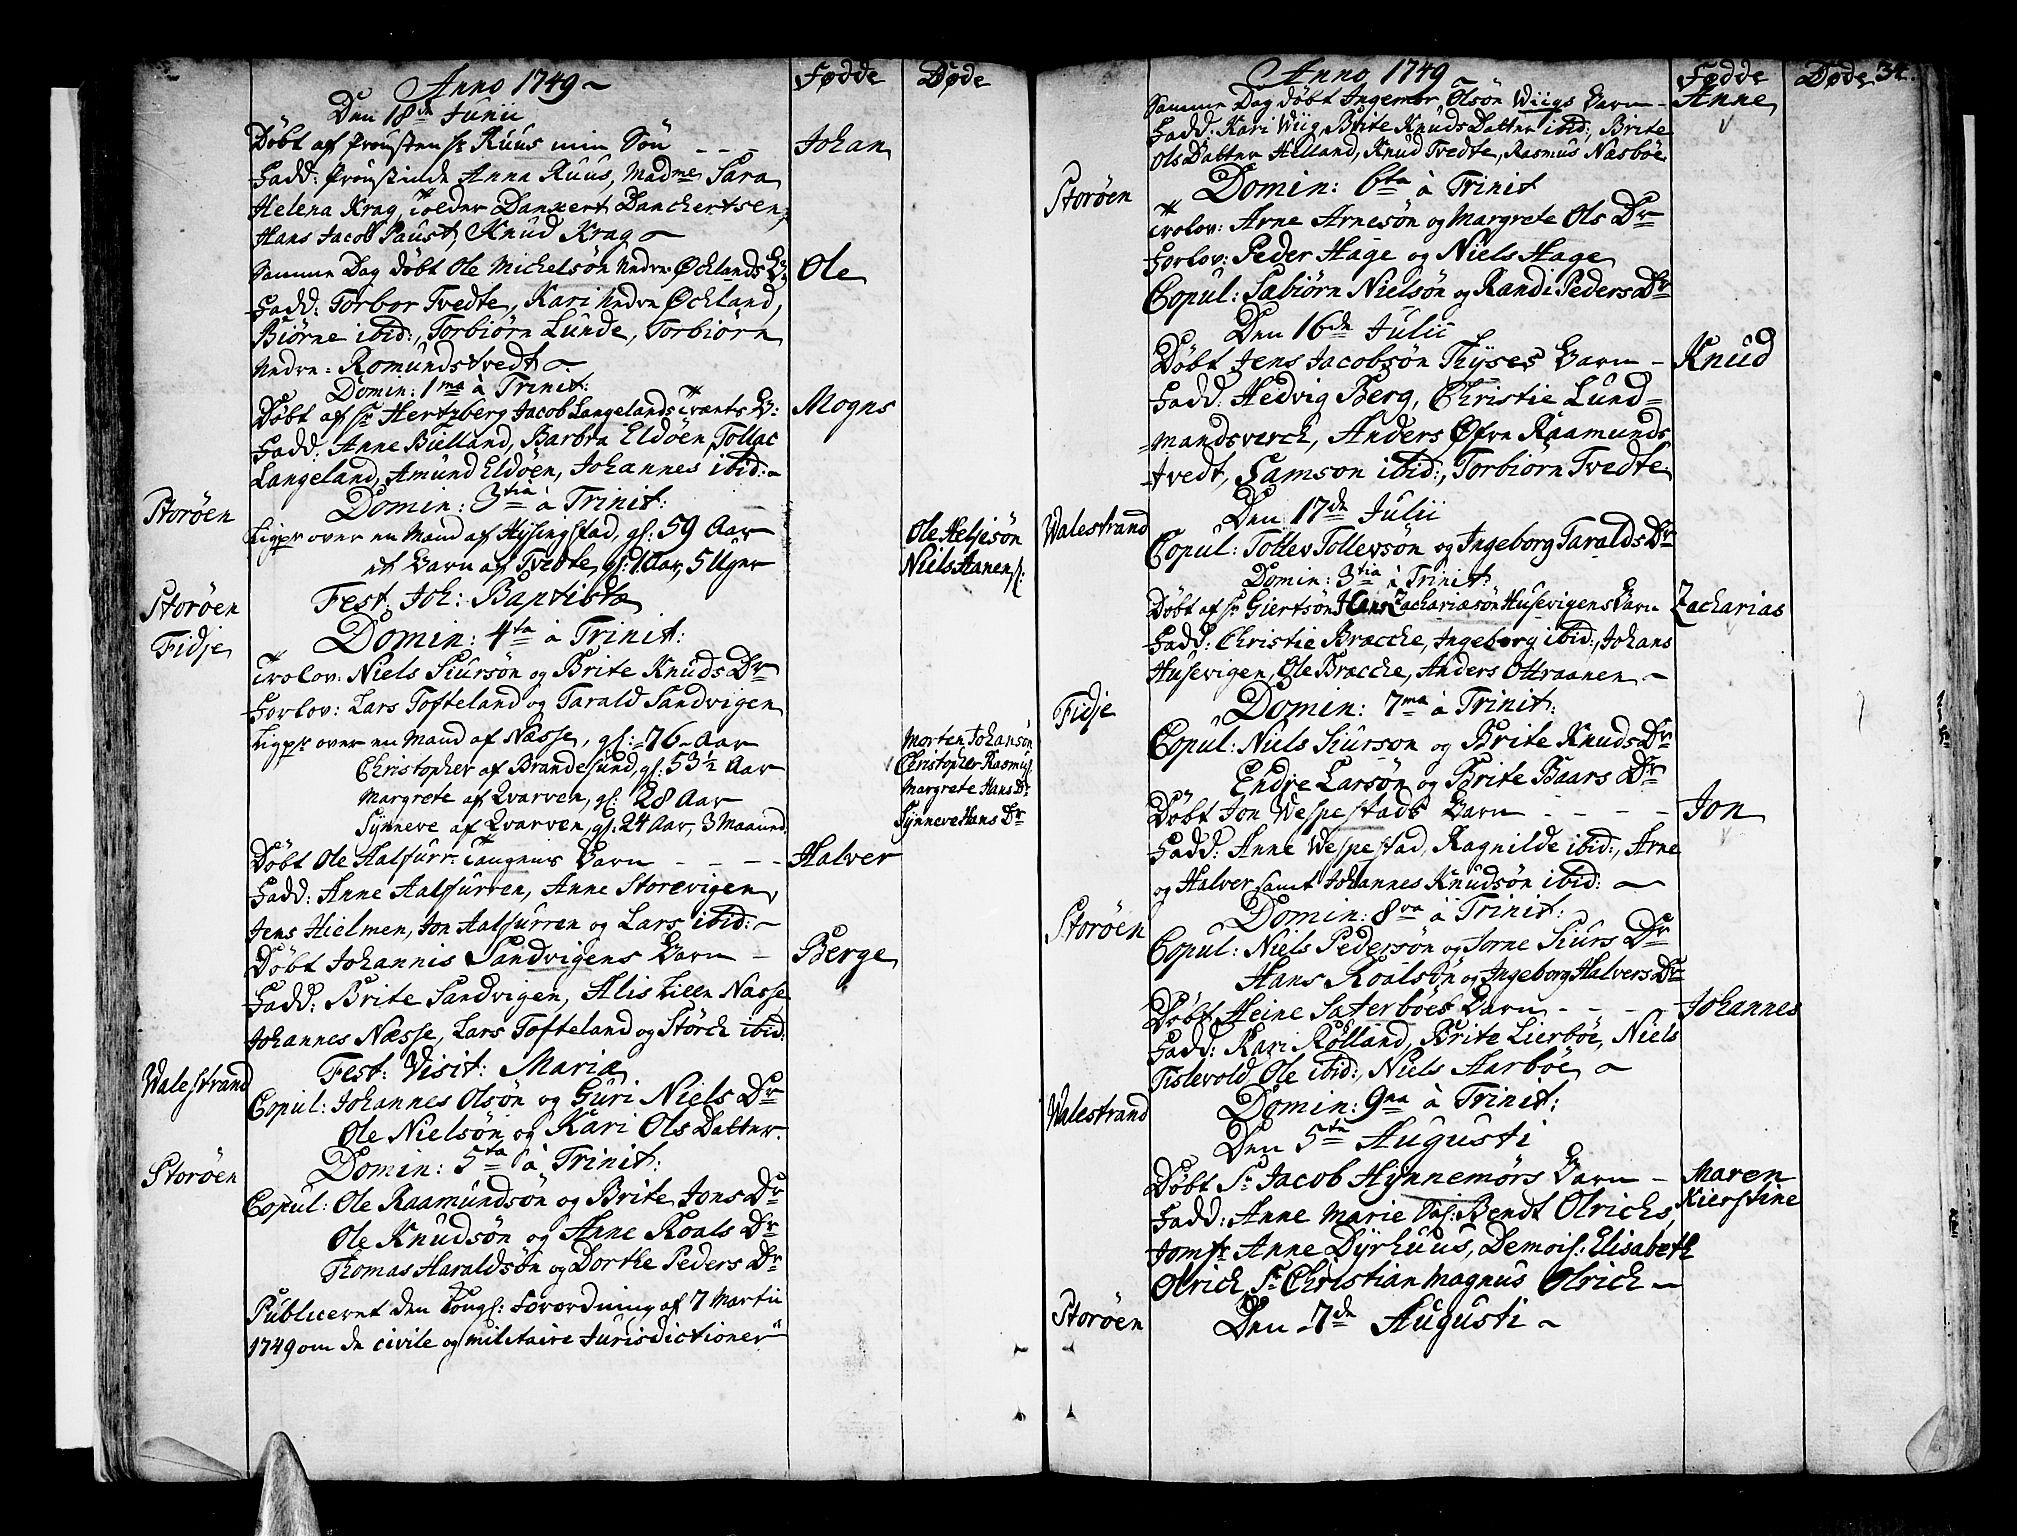 Anno 1749
Fødde
Døde
Den 18de Junii
Døbt af Proustens Hr Ruus min Søn
Johan
Fadd: Proustinde Anna Ruus, Madme Sara
Helena Krag, Tolder Dankert Danckertsen,
Hans Jacob Paust, Knud Krag
Samme Dag døbt Ole Michelsøn Nedre Øcklands B:
Ole
Fadd: Torbor Tvedte, Kari Nedre Øckland,
Biørne ibid:, Torbiørn Lunde, Torbiørn
Nedre Romundstvedt
Domin: 1ma à Trinit:
Døbt af Hr Hertzberg Jacob Langelands B:
Mogns
Fadd: Anne Bielland, Barbra Eldøen, Tollac
Langeland, Amund Eldøen, Johannes ibid:
Storøen
Domin: 3tia à Trinit:
Ligpr over en Mand af Hysingstad, gl: 59 Aar
Ole Heljesøn
et Barn af Tvedte, gl: 1 Aar, 5 Uger
Niels Hansen
Storøen
Fest. Joh: Baptista
Fidje
Domin: 4ta à Trinit:
Trolov: Niels Siursøn og Brite Knuds Dr
Forlov: Lars Tofteland og Tarald Sandvigen
Ligpr over en Mand af Næsse, gl: 76 Aar
Morten Johansøn
Christopher af Brandesund, gl: 53½ Aar
Christopher Rasmus:
Margrete af Qvarven, gl: 28 Aar
Margrete Hans Dr
Synneve af Qvarven, gl: 24 Aar, 3 Maaned
Synneve Hans Dr
Døbt Ole Aalfurr: Taugens Barn
Halver
Fadd: Anne Aalfurren, Anne Storevigen,
Jens Hielmen, Jon Aalfurren og Lars ibid:
Døbt Johannis Sandvigens Barn
Berge
Fadd: Brite Sandvigen, Alis Lille Næsse
Johannes Næsse, Lars Tofteland og Størck ibid:
Walestrand
Fest: Visit: Mariæ
Copul: Johannes Olsøn og Guri Niels Dr
Ole Nielsøn og Kari Ols Datter.
Storøen
Domin: 5ta à Trinit:
Copul: Ole Raamundsøn og Brite Jons Dr
Ole Knudsøn og Anne Roals Dr
Thomas Haraldsøn og Dorthe Peders Dr
Publiceret den Kongl: Forordning af 7 Martii
1749 om de civile og militaire Jurisdictioner
Anno 1749
Fødde
Døde
34.
Samme Dag døbt Ingemer Olsøn Wiigs Barn
Anne
Fadd: Kari Wiig, Brite Knuds Datter ibid:, Brite
Ols Datter Helland, Knud Tvedte, Rasmus Næsbøe
Storøen
Domin: 6ta à Trinit
Trolov: Arne Arnesøn og Margrete Ols Dr
Forlov: Peder Hage og Niels Hage
Copul: Sabiørn Nielsøn og Randi Peders Dr
Den 16de Julii
Døbt Jens Jacobsøn Thyses Barn
Knud
Fadd: Hedvig Berg, Christie Lund=
=mandsverck, Anders Øfre Raamunds
tvedt, Samson ibid:, Torbiørn Tvedte
Walestrand
Den 17de Julii
Copul: Tollev Tollevsøn og Ingeborg Taralds Dr
Domin: 3tia à Trinit:
Døbt af Hr Giertsøn Hans Zachariæsøn Husevigens Barn
Zacharias
Fadd: Christie Bræcche, Ingeborg ibid:, Johans
Husevigen, Ole Bræcche, Anders Ottraanen
Fidje
Domin: 7ma à Trinit:
Copul: Niels Siurson og Brite Knuds Dr
Endre Larsøn og Brite Baars Dr
Døbt Jon Wespestads Barn
Jon
Fadd: Anne Wespestad, Ragnilde ibid:, Arne
og Halver samt Johannes Knudsøn ibid:
Storøen
Domin: 8va à Trinit:
Copul: Niels Pedersøn og Jorne Siurs Dr
Hans Roalsøn og Ingeborg Halvers Dr
Døbt Heine Saterbøes Barn
Johannes
Fadd: Kari Rolland, Brite Lierbøe, Niels
Tislevold, Ole ibid:, Niels Aarbøe
Walestrand
Domin: 9na à Trinit:
Den 5te Augusti
Døbt Sr Jacob Hynnemørs Barn
Maren
Kierstine
Fadd: Anne Marie Bendt Olrichs,
Jomfr Anne Dyrhuus, Demois: Elisabeth
Olrich, Sr Christian Magnus Olrich
Storøen
Den 7de Augusti